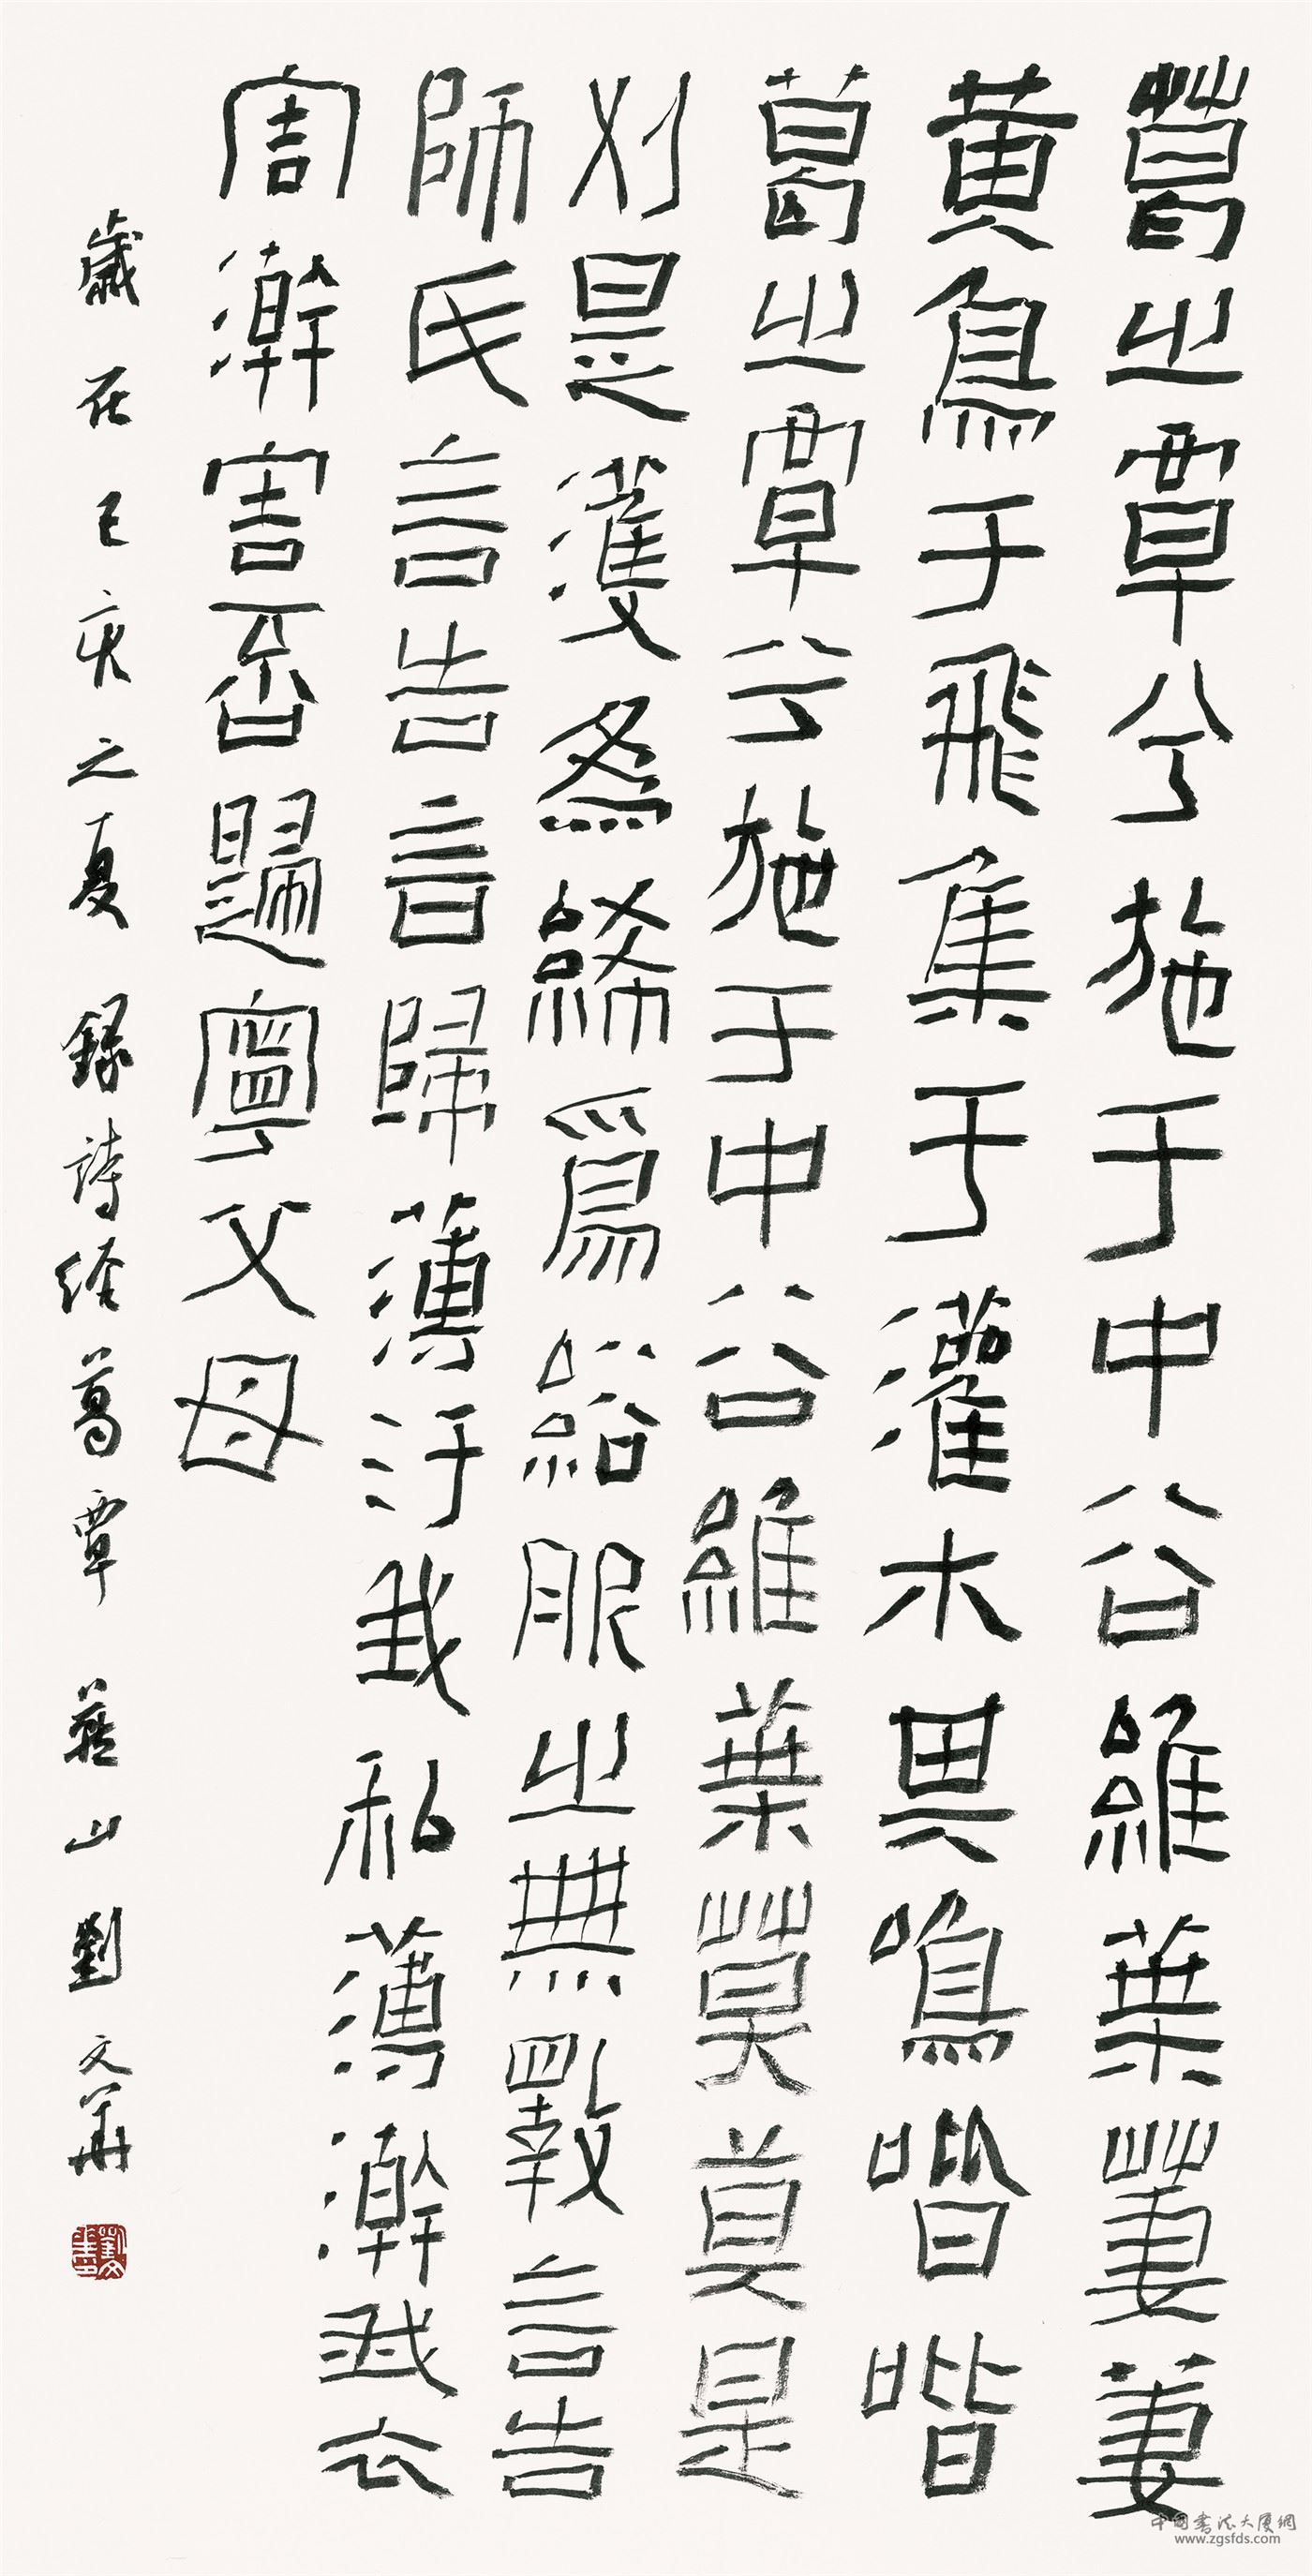 葛之覃兮施于中谷維葉萋萋
黃鳥于飛集于灌木其鳴喈喈
葛之覃兮施于中谷維葉莫莫是
刈是濩為絺爲綌服之無斁言告
師氏言告言歸薄汙我私薄澣我衣
害澣害否歸寧父母
歲在己亥之夏錄詩經葛覃燕山劉文華
中國書法大廈網
www.zgsfds.com